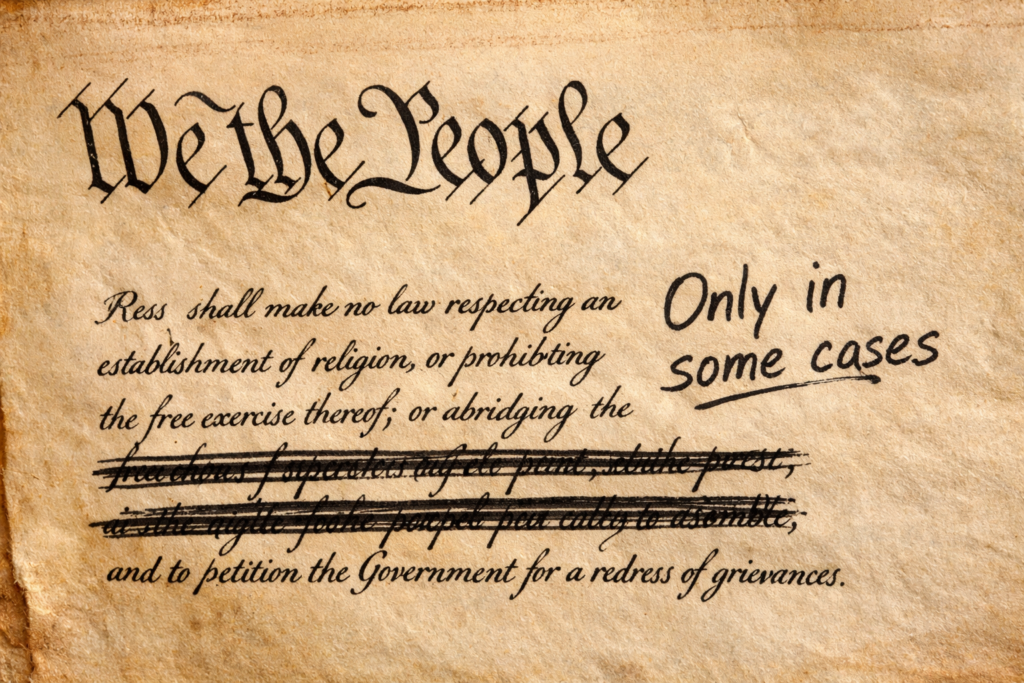 We the People
Ress shall make no law respecting an
establishment of religion, or prohibting
the free exercise thereof; or abridging the
and to petition the Government for a redress of grievances.
Only in
some cases